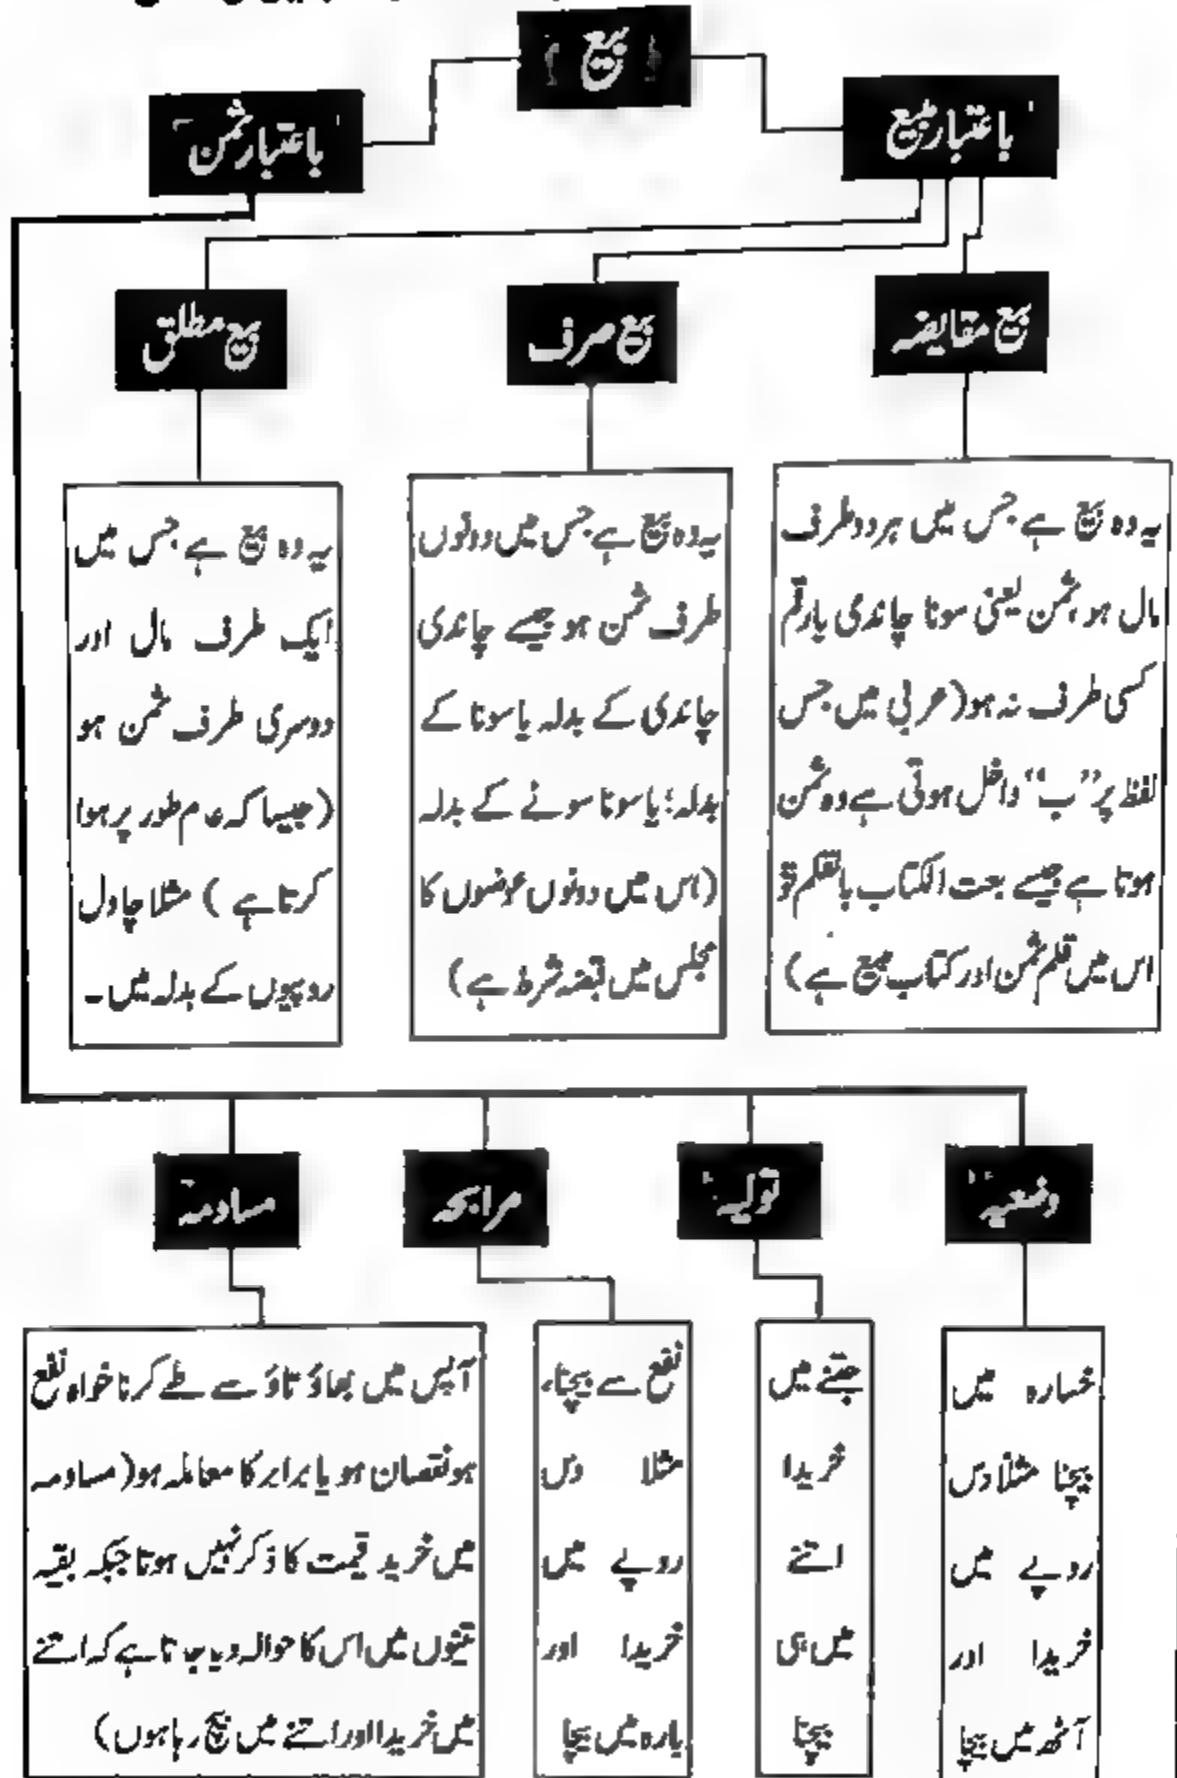 بیع
باعتبار مبیع
باعتبار ثمن
بیع مقایضہ
بیع صرف
بیع مطلق
یہ وہ بیع ہے جس میں ہر دو طرف
مال ہو، ثمن یعنی سونا چاندی یا رقم
کسی طرف نہ ہو (عربی میں جس
لفظ پر ”ب“ داخل ہوتی ہے وہ ثمن
ہوتا ہے جیسے بعت الکتاب بالقلم تو
اس میں قلم ثمن اور کتاب مبیع ہے)
یہ وہ بیع ہے جس میں دونوں
طرف ثمن ہو جیسے چاندی
چاندی کے بدلہ یا سونا کے
بدلہ؛ یا سونا سونے کے بدلہ
(اس میں دونوں عوضوں کا
مجلس میں قبضہ شرط ہے)
یہ وہ بیع ہے جس میں
ایک طرف مال اور
دوسری طرف ثمن ہو
(جیسا کہ عام طور پر ہوا
کرتا ہے) مثلا چاول
روپیوں کے بدلہ میں۔
وضعیہ
تولیہ
مرابحہ
مساومہ
خسارہ میں
بیچنا مثلاً دس
روپے میں
خریدا اور
آٹھ میں بیچا
جتنے میں
خریدا
اتنے
میں ہی
بیچنا
نفع سے بیچنا،
مثلا دس
روپے میں
خریدا اور
بارہ میں بیچا
آپس میں بھاؤ تاؤ سے طے کرنا خواہ نفع
ہو نقصان ہو یا برابر کا معاملہ ہو (مساومہ
میں خرید قیمت کا ذکر نہیں ہوتا جبکہ بقیہ
تینوں میں اس کا حوالہ دیا جاتا ہے کہ اتنے
میں خریدا اور اتنے میں بیچ رہا ہوں)